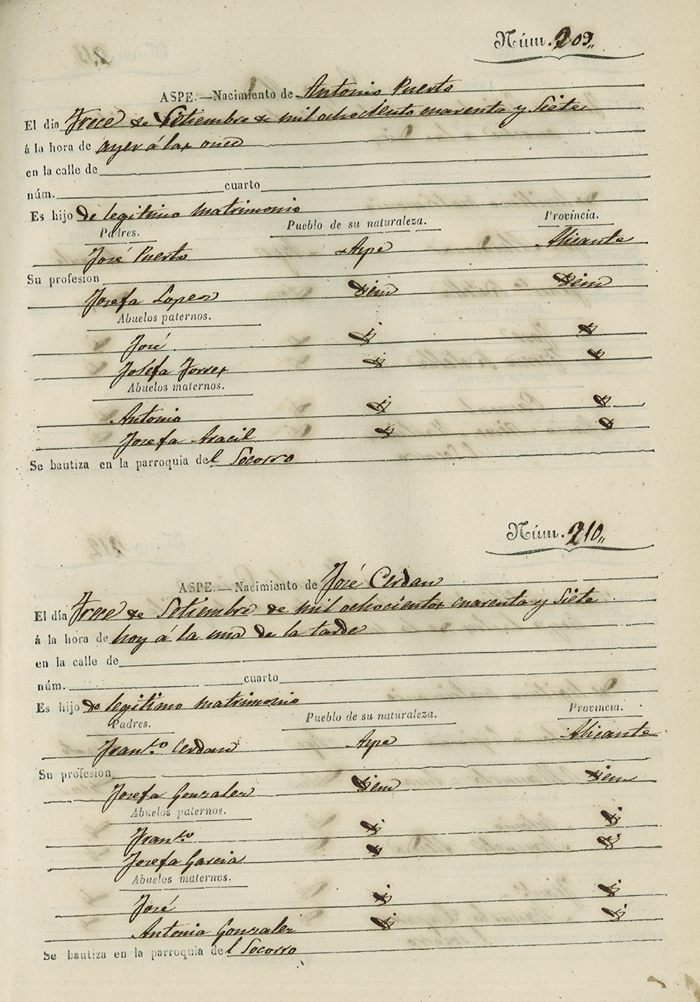 Núm. 209„
ASPE.—Nacimiento de Antonio Puerto
El dio Trece de Setiembre de mil ochociento cuarenta y Siete
á la hora de ayer á las once
en la calle de
núm. cuarto
Es hijo de legitimo matrimonio
Padres. Pueblo de su naturaleza. Provincia.
José Puerto Aspe Alicante
Su profesion
Josefa Lopez Idem Idem
Abuelos paternos.
José id id
Josefa Torres id id
Abuelos maternos.
Antonio id id
Josefa Aracil id id
Se bautiza en la parroquia del Socorro
Núm. 210„
ASPE.—Nacimiento de José Cerdan
El día Trece de Setiembre de mil ochocientos cuarenta y Siete
á la hora de hoy á la una de la tarde
en la calle de
núm. cuarto
Es hijo de legitimo matrimonio
Padres. Pueblo de su naturaleza. Provincia.
Franco. Cerdan Aspe Alicante
Su profesion
Josefa Gonzalez Idem Idem
Abuelos paternos.
Franco id id
Josefa Garcia id id
Abuelos maternos.
José id id
Antonia Gonzalez id id
Se bautiza en la parroquia del Socorro